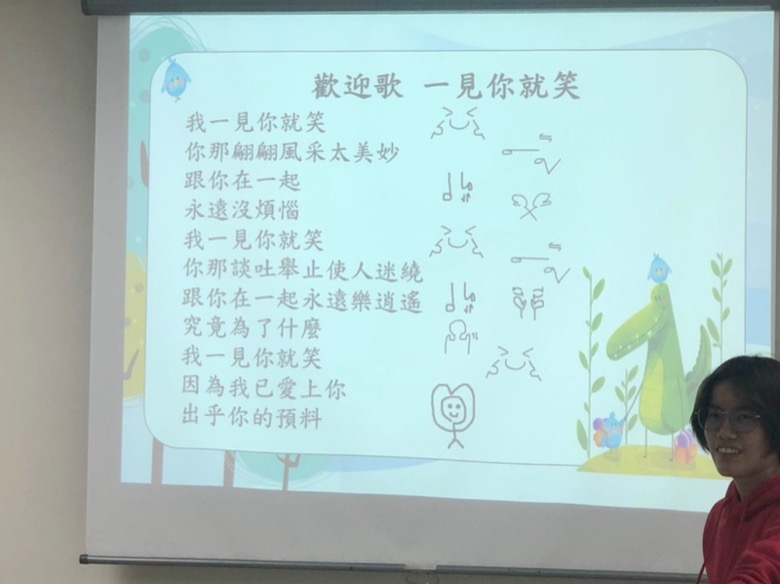 歡迎歌 一見你就笑
我一見你就笑
你那翩翩風采太美妙
跟你在一起
永遠沒煩惱
我一見你就笑
你那談吐舉止使人迷繞
跟你在一起永遠樂逍遙
究竟為了什麼
我一見你就笑
因為我已愛上你
出乎你的預料